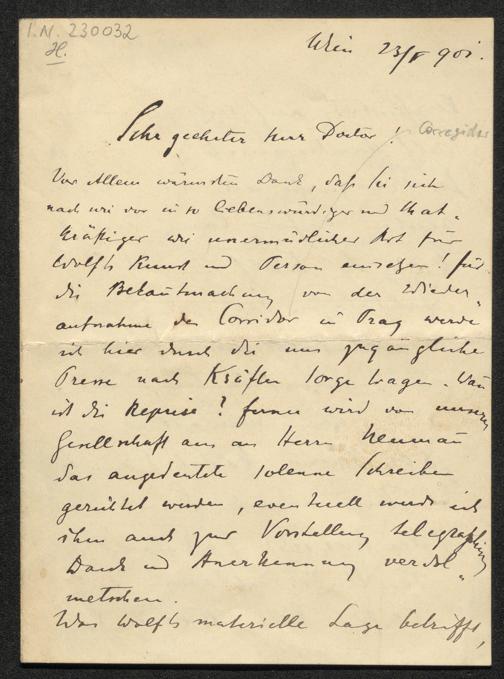 I.N. 230032
Wien 23/5 901.
Sehr geehrter Herr Doctor!
Corregidor
Vor Allem wärmsten Dank, daß Sie sich
nach wie vor in so liebenswürdiger und that-
kräftiger wie unermüdlicher Art für
Wolfs Kunst und Person einsetzen! Für
die Bekantmachung von der Wieder-
aufnahme des Corridor in Prag werde
ich hier durch die uns zugängliche
Presse nach Kräften sorge tragen. Wan
ist die Reprise? Ferner wird von unserer
Gesellschaft aus an Herrn Neuman
das angedeutete solenne Schreiben
gerichtet werden, eventuell werde ich
ihm auch zur Vorstellung telegraphisch
Dank und Anerkennung verdol-
metschen.
Was Wolfs materielle Lage betrifft,